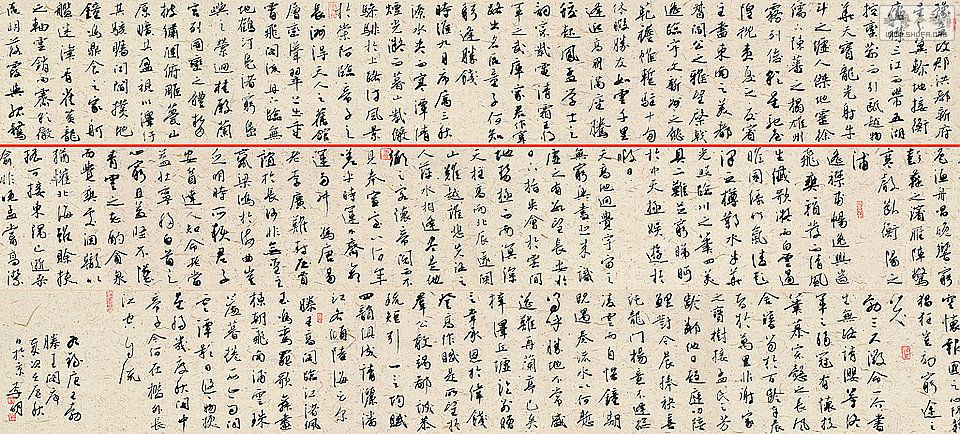 豫章故郡洪都新府
星分翼軫地接衡
廬襟三江而帶五湖
控蠻荊而引甌越物
華天寶龍光射牛
斗之墟人傑地靈徐
孺下陳蕃之榻雄州
霧列俊彩星馳臺
隍枕夷夏之交賓
主盡東南之美都
督閻公之雅望棨戟
遙臨宇文新州之懿
範襜帷暫駐十旬
休暇勝友如雲千里
逢迎高朋滿座騰
蛟起鳳孟學士之
詞宗紫電清霜王將
軍之武庫家君作宰
路出名區童子何知
躬逢勝餞
時維九月序屬三秋
潦水盡而寒潭清
煙光凝而暮山紫儼
驂騑於上路訪風景
於崇阿臨帝子之
長洲得天人之舊館
層巒聳翠上出重
霄飛閣流丹下臨無
地鶴汀鳧渚窮島
嶼之縈迴桂殿蘭
宮列岡巒之體勢
披繡闥俯雕甍山
原曠其盈視川澤紆
其駭矚閭閻撲地
鐘鳴鼎食之家舸
艦迷津青雀黃龍
之軸雲銷雨霽彩徹
區明落霞與孤鶩
漁舟唱晚響窮
彭蠡之濱雁陣驚
寒聲斷衡陽之
浦
遙襟甫暢逸興遄
飛爽籟發而清風
生纖歌凝而白雲遏
睢園綠竹氣凌彭
澤之樽鄴水朱華
光照臨川之筆四美
具二難并窮睇眄
於中天極娛遊於
暇日
天高地迥覺宇宙之
無窮興盡悲來識
盈虛之有數望長安於
日下指吳會於雲間
地勢極而南溟深
天柱高而北辰遠關
山難越誰悲失路之
人萍水相逢盡是他
鄉之客懷帝閽而不
見奉宣室以何年
嗟乎時運不齊命
運多舛馮唐易
老李廣難封屈賈
誼於長沙非無聖主
竄梁鴻於海曲豈
乏明時所賴君子
安貧達人知命老當
益壯寧移白首之
心窮且益堅不墜
青雲之志酌貪泉
而覺爽處涸轍以
猶懽北海雖賒扶
搖可接東隅已逝桑
榆非晚孟嘗高潔
空懷報國之心阮籍
猖狂豈效窮途之
哭
勃三尺微命一書
生無路請纓等終
軍之弱冠有懷投
筆慕宗愨之長風
舍簪笏於百齡奉晨
昏於萬里非謝家
之寶樹接孟氏之芳
鄰他日趨庭叨陪
鯉對今晨捧袂喜
託龍門楊意不逢撫
凌雲而自惜鍾期
既遇奏流水以何慚
嗚呼勝地不常盛
筵難再蘭亭已矣
梓澤丘墟臨別贈
言幸承恩於偉餞
登高作賦是所望於
群公敢竭鄙誠恭
疏短引一言均賦
四韻俱成請灑潘
江各傾陸海云爾
滕王高閣臨江渚佩
玉鳴鸞罷歌舞畫
棟朝飛南浦雲珠
簾暮捲西山雨閒
雲潭影日悠悠物換
星移幾度秋閣中
帝子今何在檻外長
江空自流
滕王閣序